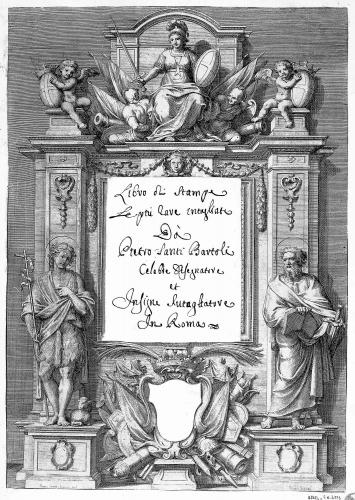 Libro di Stampe
Le piu Rare intagliate
Dà
Pietro Santi Bartoli
Celebre Disegnatore
et
Insigne Intagliatore
In Roma